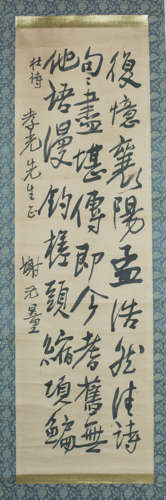 復憶襄陽孟浩然清詩
句〻盡堪傳即今耆舊無
他語漫釣槎頭縮項鯿
杜詩
孝老先生正
謝无量